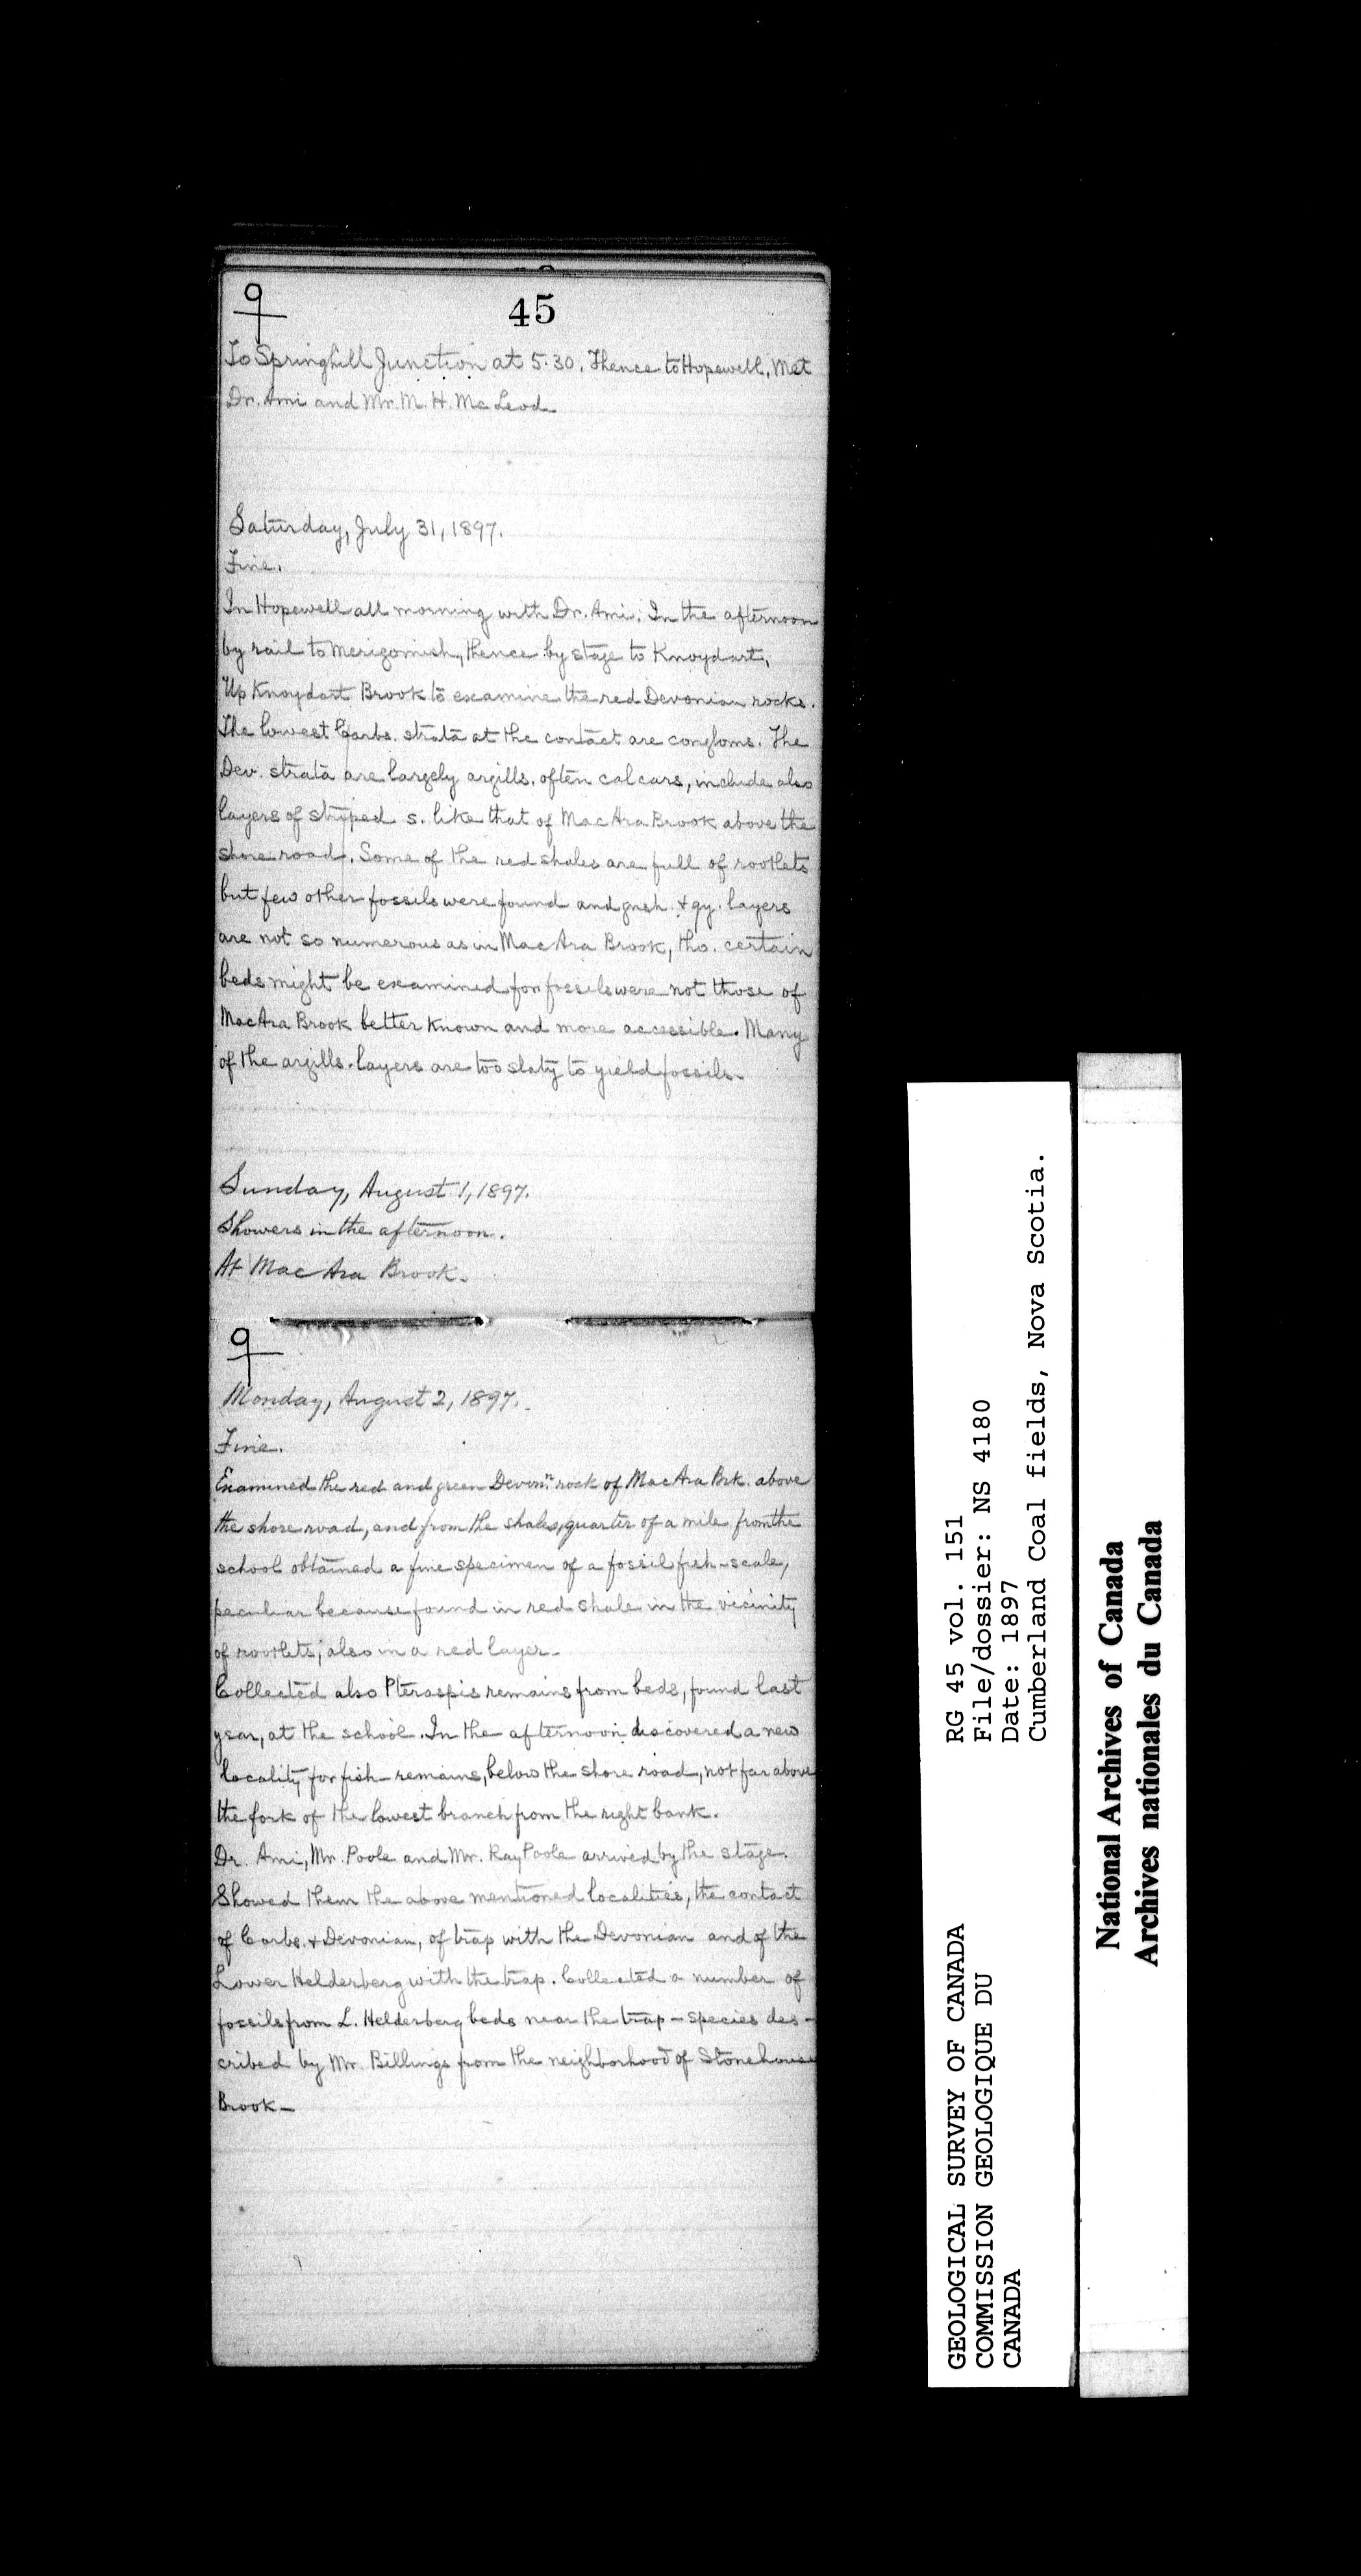 9
45
To Springhill Junction at 5.30. Thence to Hopewell, Met
Dr. Ami and Mr. M. H. McLeod.
Saturday, July 31, 1897.
Fine.
In Hopewell all morning with Dr. Ami. In the afternoon
by rail to Merigomish, thence by stage to Knoydart.
Up Knoydart Brook to examine the red Devonian rocks.
The lowest Carbs. strata at the contact are congloms. The
Dev. strata are largely argills. often calcars, include also
layers of striped s. like that of MacAra Brook above the
shore road. Some of the red shales are full of rootlets
but few other fossils were found and gnsh. & gy. layers
are not so numerous as in MacAra Brook, tho. certain
beds might be examined for fossils were not those of
MacAra Brook better known and more accessible. Many
of the argills. layers are too slaty to yield fossils.
Sunday, August 1, 1897.
Showers in the afternoon.
At MacAra Brook.
9
Monday, August 2, 1897.
Fine.
Examined the red and green Devonn. rock of MacAra Brk. above
the shore road, and from the shales, quarter of a mile from the
school obtained a fine specimen of a fossil fish-scale,
peculiar because found in red shale in the vicinity
of rootlets; also in a red layer.
Collected also Pteraspis remains from beds, found last
year, at the school. In the afternoon discovered a new
locality for fish-remains, below the shore road, not far above
the fork of the lowest branch from the right bank.
Dr. Ami, Mr. Poole and Mr. Ray Poole arrived by the stage.
Showed them the above mentioned localities, the contact
of Carbs. & Devonian, of trap with the Devonian and of the
Lower Helderberg with the trap. Collected a number of
fossils from L. Helderberg beds near the trap - species des-
cribed by Mr. Billings from the neighborhood of Stonehouse
Brook -
GEOLOGICAL SURVEY OF CANADA
COMMISSION GEOLOGIQUE DU
CANADA
RG 45 vol. 151
File/dossier: NS 4180
Date: 1897
Cumberland Coal fields, Nova Scotia.
National Archives of Canada
Archives nationales du Canada